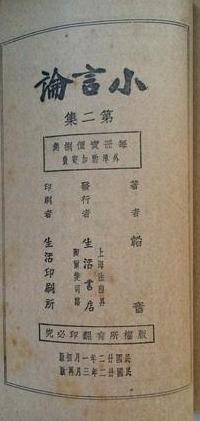 小言論
第二集
每冊實價捌角
外埠酌加寄費
著者 韜奮
發行者 生活書店
上海法租界
印刷者 生活印刷所
版權所有翻印必究
民國廿二年一月初版
民國廿二年三月再版